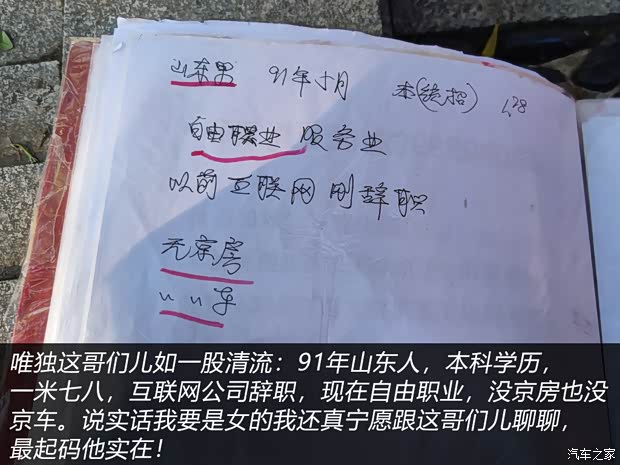 山东男 91年十月 本(统招) 1,78
自由职业 服务业
以前 互联网 刚辞职
无京房
〃 〃车
唯独这哥们儿如一股清流：91年山东人，本科学历，
一米七八，互联网公司辞职，现在自由职业，没京房也没
京车。说实话我要是女的我还真宁愿跟这哥们儿聊聊，
最起码他实在！
汽车之家